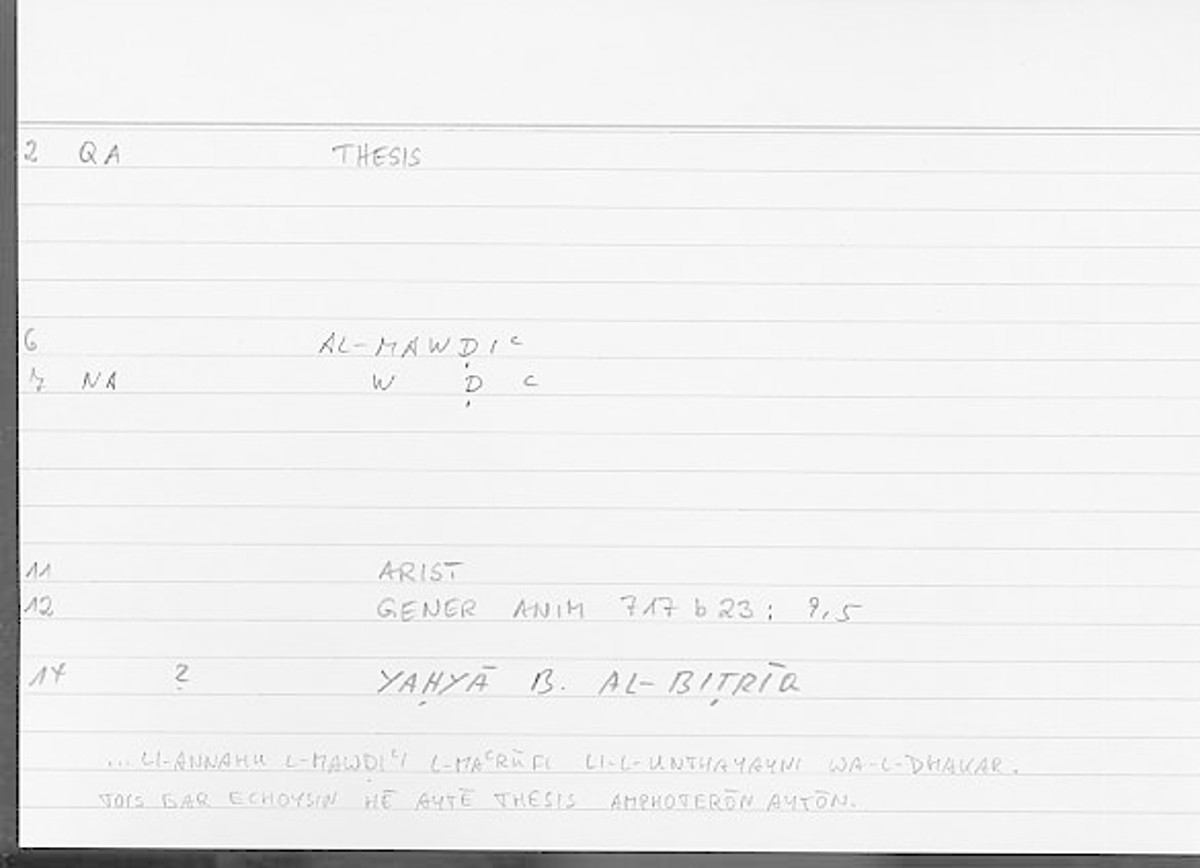 2 QA THESIS
6 AL-MAWḌIᶜ
7 NA W Ḍ ᶜ
11 ARIST
12 GENER ANIM 717 b 23 ; 9,5
14 ? YAḤYĀ B. AL-BIṬRĪQ
... LI-ANNAHU L-MAWḌIᶜI L-MAᶜRŪFI LI-L-UNTHAYAYNI WA-L-DHAKAR.
TOIS GAR ECHOYSIN HĒ AYTĒ THESIS AMPHOTERŌN AYTŌN.